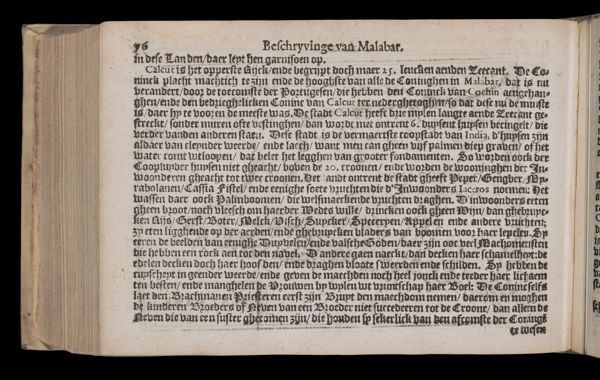 76 Beschryvinge van Malabar.
in dese Landen/daer leyt hen garnisoen op.
Calcut is het opperste Rijck/ende begrijpt doch maer 25. leucken aenden Zeecant. De Co-
ninck placht machtich te zijn ende de hooghste van alle de Coninghen in Malabar, dat is nu
verandert/door de toecomste der Portugesen/die hebben den Coninck van Cochin aengehan-
ghen/ende den bedrieghelicken Coninc van Calcut ter nederghetoghen/so dat dese nu de minste
is/daer hy te vooren de meeste was. De stadt Calcut heeft drie mylen langte aende Zeecant ge-
streckt/sonder muren ofte vestinghen/dan wordt met ontrent 6. duysent huysen beringelt/die
verder vanden anderen staen. Dese stadt is de vermaertste coopstadt van India, d'huysen zijn
aldaer van cleynder weerde/ende laech/want men can gheen vijf palmen diep graven/of het
water comt wtloopen/dat belet het legghen van grooter fondamenten. So worden oock der
Coopluyder huysen niet gheacht/boven de 20. croonen/ende worden de wooninghen der In-
woonderen ghracht tot twee croonen. Het landt ontrent de stadt gheeft Peper/Gengber/My-
rabolanen/Cassia Fistel/ende eenighe soete vruchten die d'Inwoonders Iaceros noemen: Het
wassen daer oock Palmboomen/die welsmaeckende vruchten draghen. D'inwoonders eeten
gheen broot/noch vleesch om haerder Wedts wille/drincken oock gheen Wijn/dan ghebruyc-
ken Rijs/Gerst/Boter/Melck/Visch/Suycker/Speceryen/Appelen ende andere vruchten:
zy eten ligghende op der aerden/ende ghebruycken bladers van boomen voor haer lepelen. Sy
eeren de beelden van eenighe Duyvelen/ende valsche Goden/daer zijn ooc veel Machometisten
die hebben een rock aen tot den navel. D'andere gaen naeckt/dan decken haer schamelheyt: de
edelen decken doch haer hooft den/ende draghen bloote sweerden ende schilden. Sy hebben de
cuyscheyt in geender weerde/ende geven de maechden noch heel jonck eende leder haer lichaem
ten besten/ende manghelen de Vrouwen by wylen wt vruntschap haer Boel: De Coninc selfs
laet den Brachmanen Priesteren eerst zijn Bruyt den maechdom nemen/daerom en moghen
de kinderen Broeders of Neven van een Broeder niet succedeeren tot de Croone/dan alleen de
Neven die van een suster ghecomen zijn/die houden sy sekerlick van den afcomste der Conings
te wesen